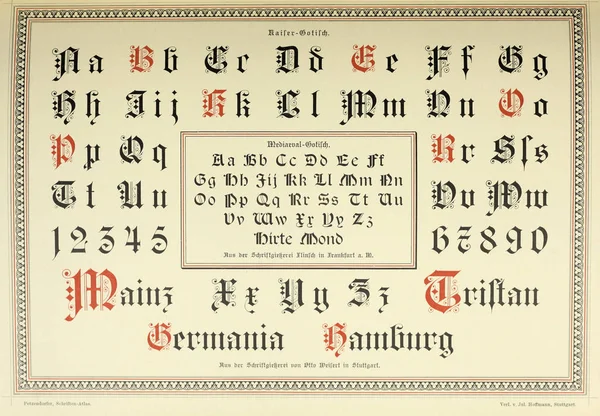 Kaiser-Gotisch.
Aa Bb Cc Dd Ee Ff Gg
Hh Iij Kk Ll Mm Nn Oo
Pp Qq Rr Sſs
Tt Uu Vv Ww
12345 67890
Mediaeval-Gotisch.
Aa Bb Cc Dd Ee Ff
Gg Hh Jij Kk Ll Mm Nn
Oo Pp Qq Rr Ss Tt Uu
Vv Ww Xx Yy Zz
Hirte Mond
Aus der Schriftgießerei Flinsch in Frankfurt a. M.
Mainz Xx Yy Zz Triſtan
Germania Hamburg
Aus der Schriftgießerei von Otto Weiſert in Stuttgart.
Petzendorfer, Schriften-Atlas. Verl. v. Jul. Hoffmann, Stuttgart.